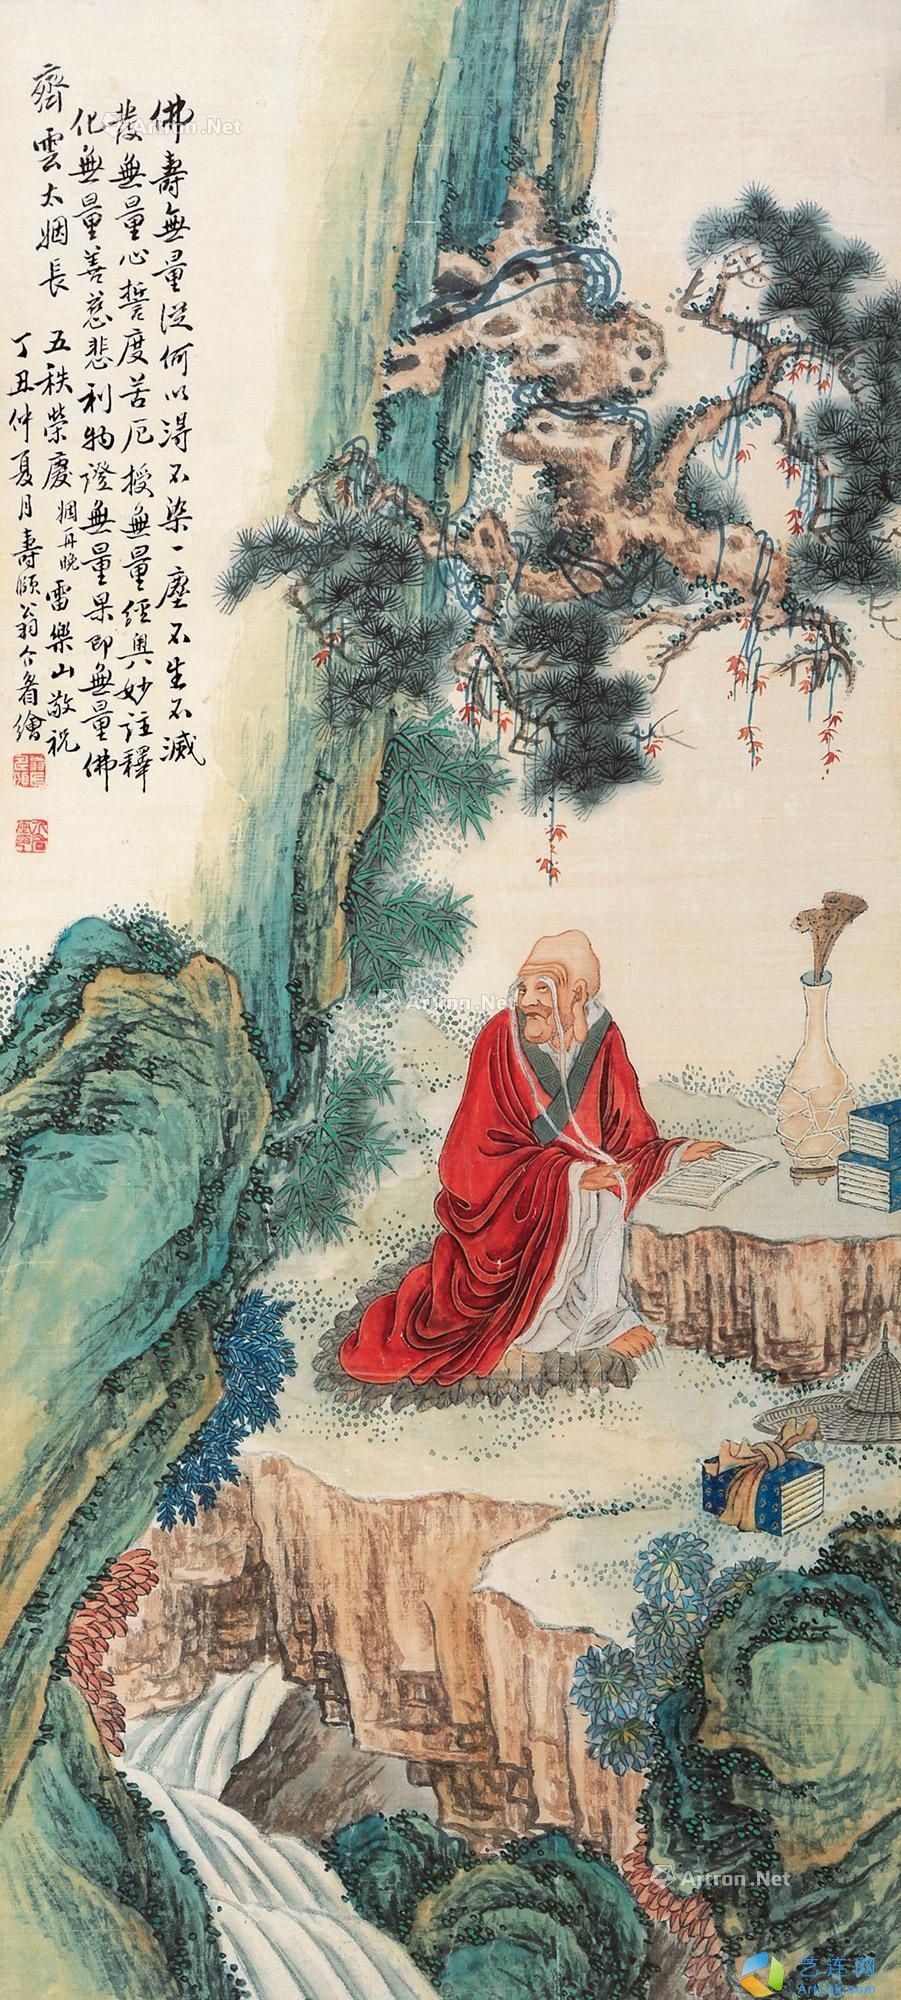 佛壽無量從何以得不染一塵不生不滅
發無量心誓度苦厄授無量經奧妙註釋
化無量善慈悲利物證無量果即無量佛
齊雲太姻長
五秩榮慶 姻再晚雷樂山敬祝
丁丑仲夏月壽頤翁介眉繪
Artron.Net
Artron.Net
Artron.Net
艺连网